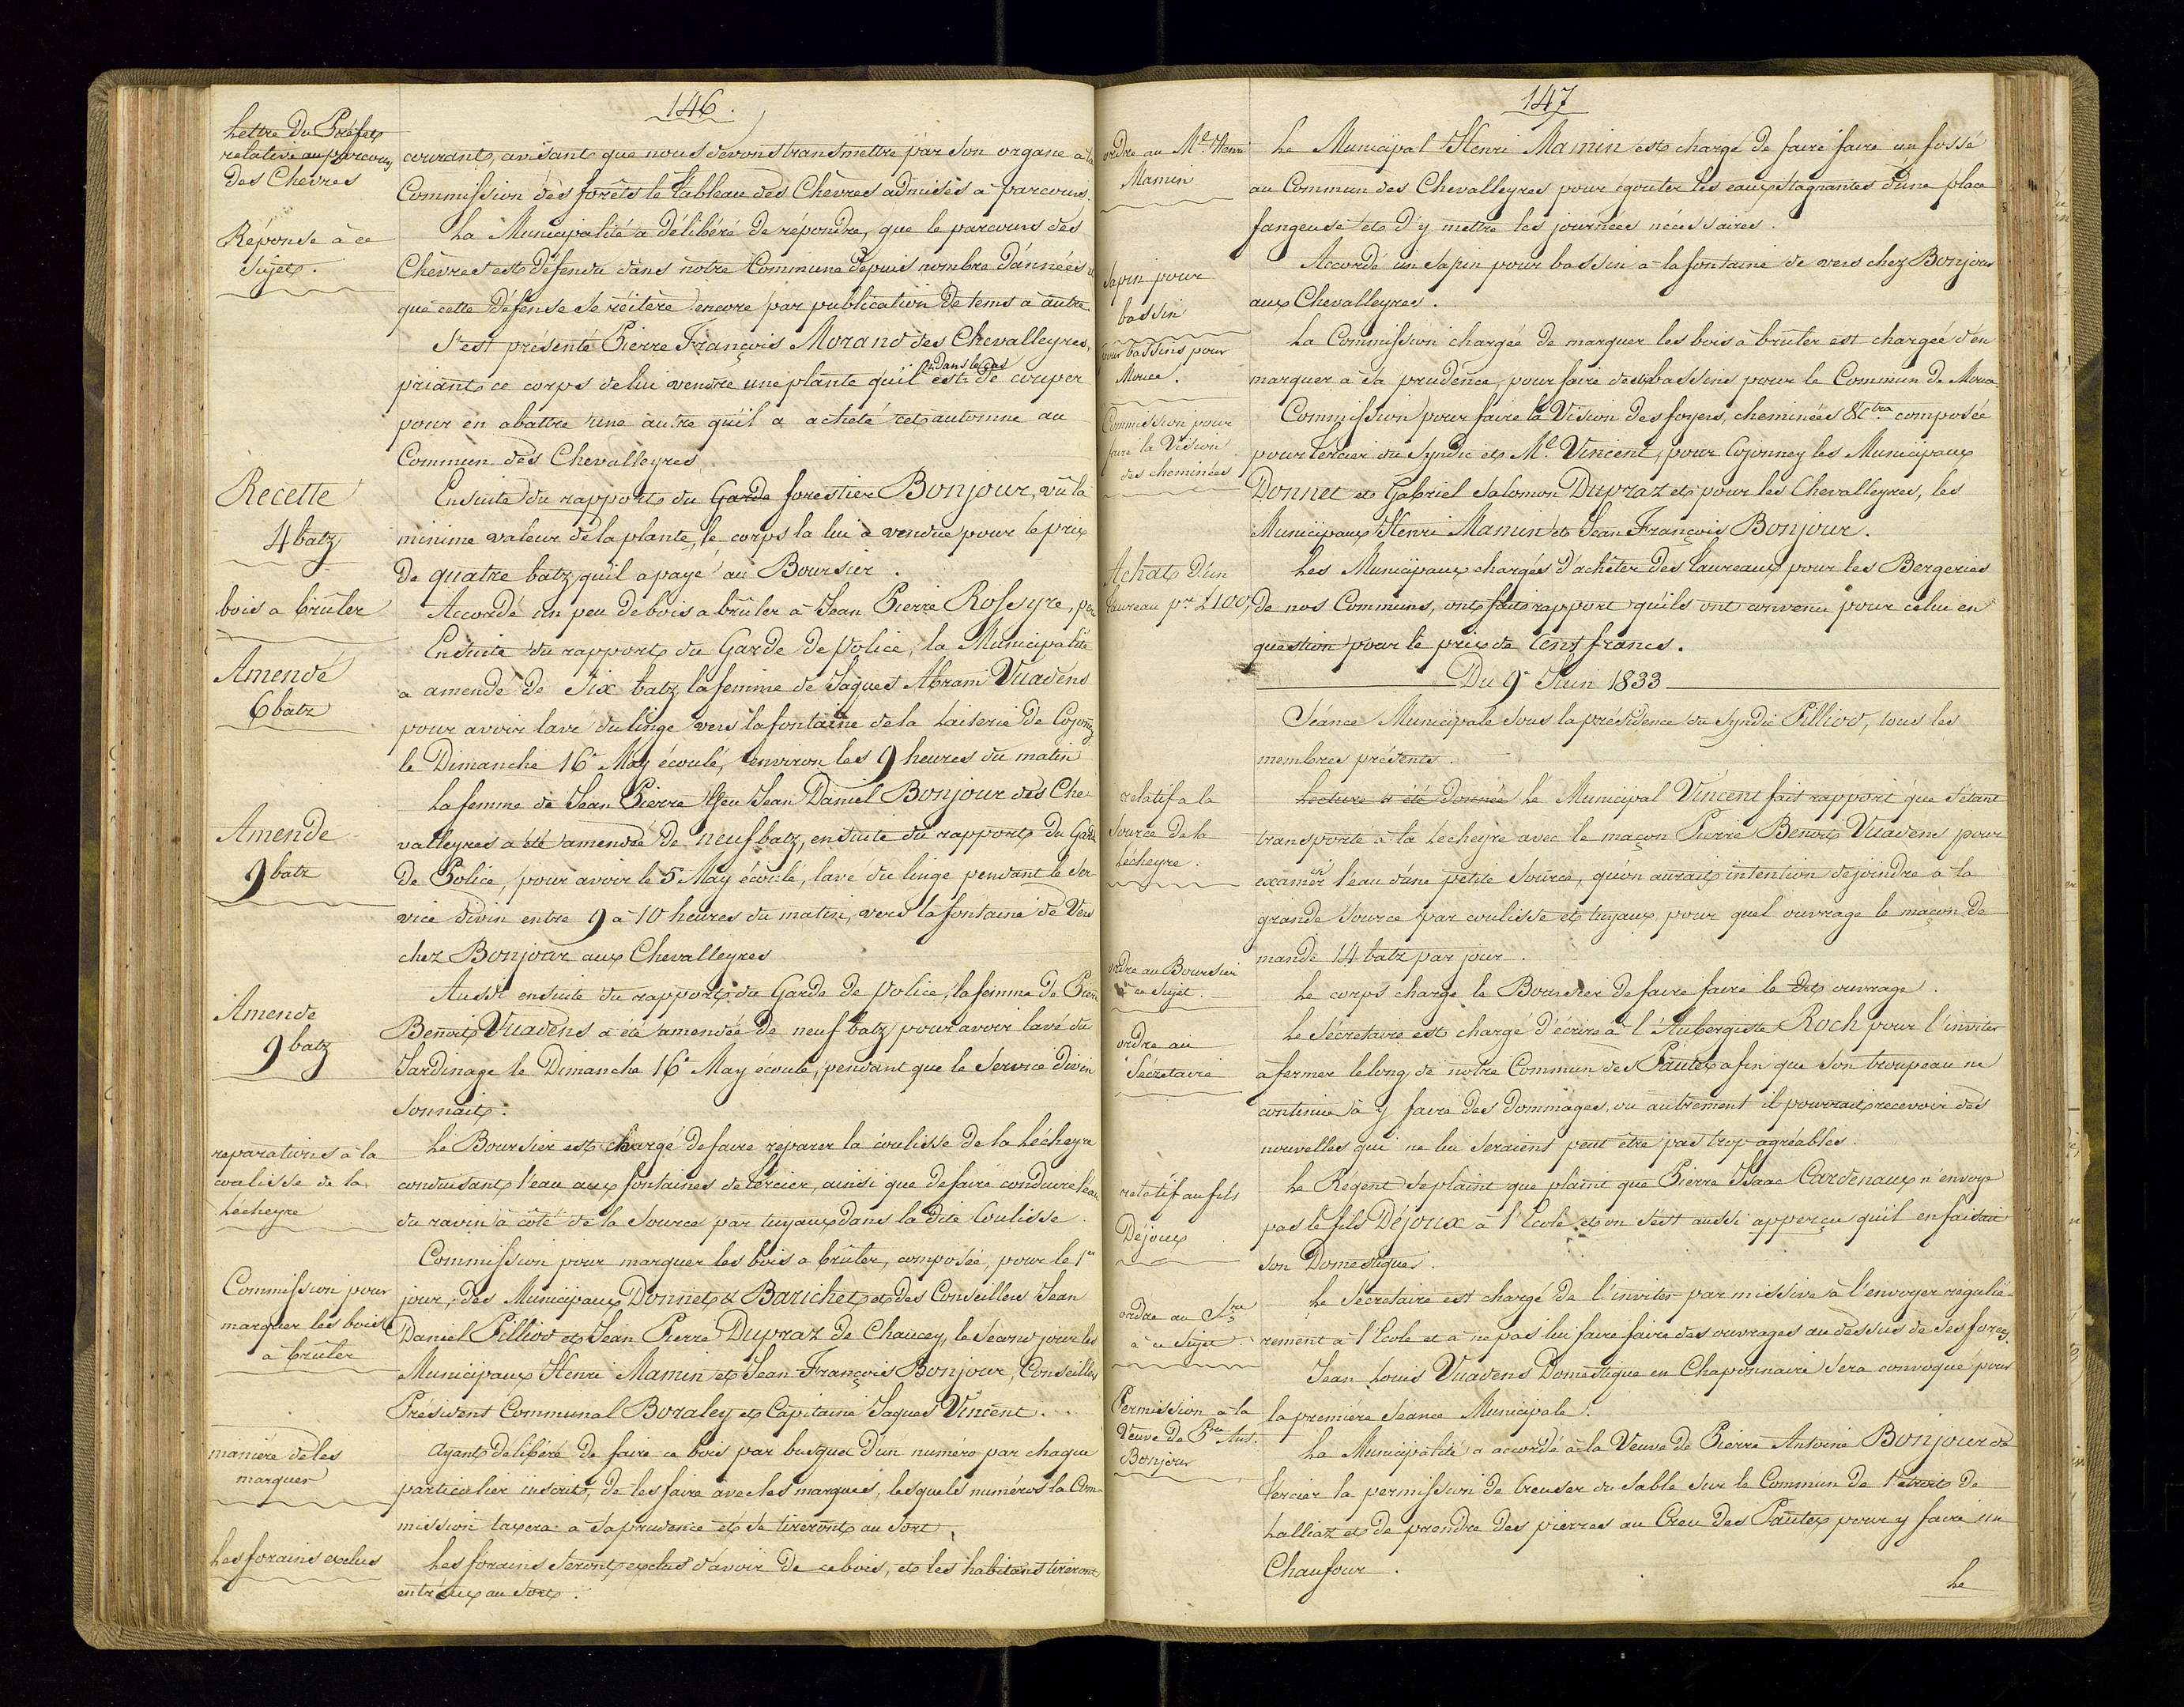 146.
Lettre du Préfet
relative au parcours
des Chevres
courant, avisant que nous devons transmettre par son organe à la
Commission des forêts le tableau des Chèvres admises à parcours.
Réponse à ce
Sujet.
La Municipalité a délibéré de répondre, que le parcours des
Chèvres est défendu dans notre Commune depuis nombre d'années et
que cette défense se réitère encore par publication de tems à autre
S'est présenté Pierre François Morand des Chevalleyres,
priant ce corps de lui vendre une plante qu'il est dans le cas de couper
pour en abattre une autre qu'il a acheté cet automne au
Commun des Chevalleyres.
Recette
4 batz
Ensuite du rapport du Garde forestier Bonjour, vû la
minime valeur de la plante, le corps la lui a vendue pour le prix
de quatre batz, qu'il a payé au Boursier.
bois a brûler
Accordé un peu de bois a brûler à Jean Pierre Rossyre, pr
Amende
6 batz
Ensuite du rapport du Garde de police, la Municipalité
a amendé de Six batz la femme de Jaques Abram Vuadens
pour avoir lavé du linge vers la fontaine de la laiterie de Cojonney
le Dimanche 16e May écoulé, environ les 9 heures du matin
Amende
9 batz
La femme de Jean Pierre ffeu Jean Daniel Bonjour des Che-
valleyres a été amendée de neuf batz, ensuite du rapport du Garde
de Police, pour avoir le 5e May écoulé, lavé du linge pendant le Ser
vice divin entre 9 a 10 heures du matin, vers la fontaine de Vers
chez Bonjour aux Chevalleyres
Amende
9 batz
Aussi ensuite du rapport du Garde de police, la femme de Pierre
Benoit Vuadens a été amendée de neuf batz pour avoir lavé du
Jardinage le Dimanche 16e May écoulé, pendant que le Service divin
Sonnait.
reparations à la
coulisse de la
Lécheyre
Le Boursier est chargé de faire reparer la coulisse de la Lécheyre
conduisant l'eau aux fontaines de tercier, ainsi que de faire conduire l'eau
du ravin à côté de la Source par tuyaux dans la dite Coulisse.
Commission pour
marquer les bois
a brûler
Commission pour marquer les bois a brûler, composée, pour le 1er
jour, des Municipaux Donnet & Barichet et des Conseillers Jean
Daniel Pilliod et Jean Pierre Dupraz de Chaucey, le second jour les
Municipaux Henri Mamin et Jean François Bonjour, Conseillers
Président Communal Boraley et Capitaine Jaques Vincent.
maniére de les
marquer
Ayant délibéré de faire ce bois par busquet d'un numéro par chaque
particulier inscrit, de les faire avec les marques, lesquels numéros la Com-
mission taxera à sa prudence et se tireront au sort.
Les forains exclus
Les forains seront exclus d'avoir de ce bois, et les habitans tireront
entr'eux au Sort.
147
ordre au Ml Henri
Mamin
Le Municipal Henri Mamin est chargé de faire faire un fossé
au Commun des Chevalleyres pour égouter les eaux stagnantes d'une place
fangeuse et d'y mettre les journées nécessaires.
Sapin pour
bassin
Accordé un sapin pour bassin à la fontaine de vers chez Bonjour
aux Chevalleyres.
pour bassins pour
Mouce.
La Commission chargée de marquer les bois a brûler est chargée d'en
marquer à sa prudence, pour faire des bassins pour le Commun de Mouce
Commission pour
faire la Vision
des cheminées
Commission pour faire la Vision des foyers, cheminées &ctra composée
pour tercier du Syndic et Ml. Vincent, pour Cojonney les Municipaux
Donnet et Gabriel Salomon Dupraz et pour les Chevalleyres, les
Municipaux Henri Mamin et Jean François Bonjour.
Achat d'un
taureau pr £100,
Les Municipaux chargés d'acheter des taureaux pour les Bergeries
de nos Communs, ont fait rapport qu'ils ont convenu pour celui en
question pour le prix de Cent francs.
Du 9e Juin 1833
Séance Municipale sous la présidence du Syndic Pilliod, tous les
membres présents.
relatif a la
Source de la
Lécheyre.
Lecture a été donnée Le Municipal Vincent fait rapport que s'étant
transporté à la Lecheyre avec le maçon Pierre Benoit Vuadens pour
examiner l'eau d'une petite Source, qu'on aurait intention de joindre à la
grande Source par coulisse et tuyaux, pour quel ouvrage le maçon de
mande 14 batz par jour.
ordre au Boursier
à ce Sujet.
Le corps charge le Boursier de faire faire le dit ouvrage.
ordre au
Sécretaire
Le Sécretaire est chargé d'écrire à l'Aubergiste Roch pour l'inviter
a fermer le long de notre Commun des Pautex afin que son troupeau ne
continue à y faire des dommages, ou autrement il pourrait recevoir des
nouvelles qui ne lui seraient peut être pas trop agréables.
relatif au fils
Déjoux
Le Régent se plaint que plaint que Pierre Isaac Cardenaux n'envoye
pas le fils Déjoux à l'Ecole et on s'est aussi apperçu qu'il en faisait
son Domestique.
ordre au Sre
à ce Sujet.
Le Sécretaire est chargé de l'inviter par missive à l'envoyer régulié-
rement à l'Ecole et à ne pas lui faire faire des ouvrages au dessus de ses forces.
Jean Louis Vuadens Domestique en Chaponnaire sera convoqué pour
la première Séance Municipale.
Permission a la
Veuve de Pre Ant.
Bonjour
La Municipalité a accordé à la Veuve de Pierre Antoine Bonjour de
tercier la permission de Creuser du Sable sur le Commun de l'etroit de
Lalliaz et de prendre des pierres au Creu des Pautex pour y faire un
Chaufour.
Le